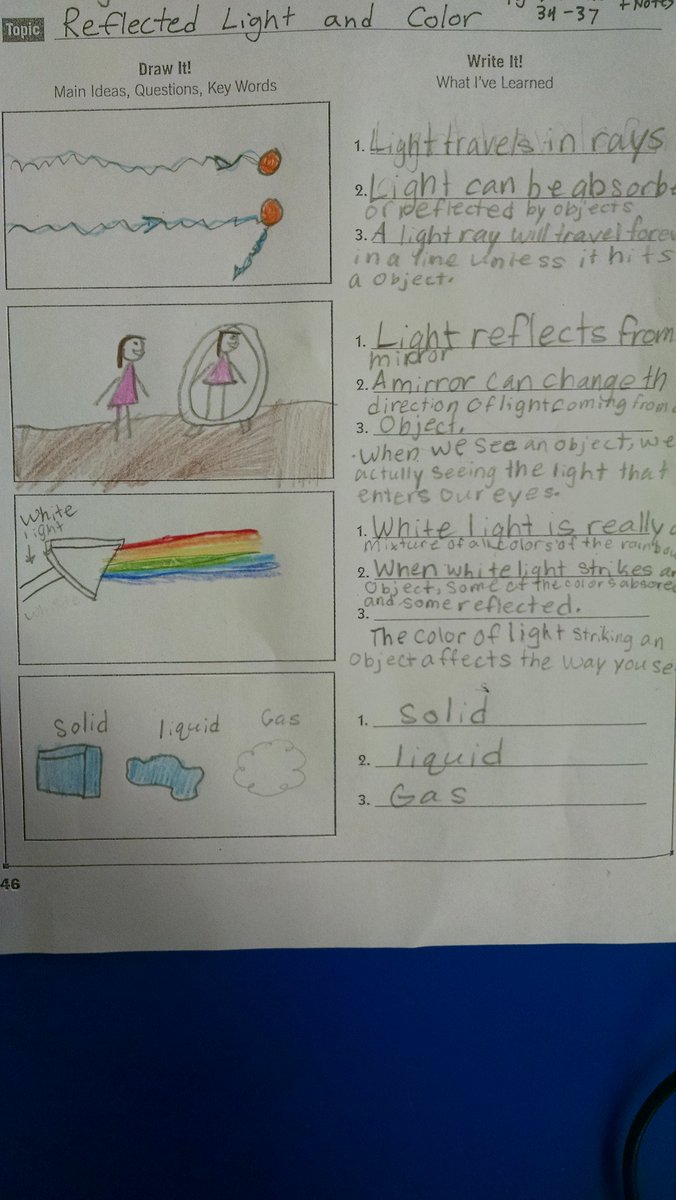 34-37 + Notes
Topic Reflected Light and Color
Draw It!
Main Ideas, Questions, Key Words
Write It!
What I've Learned
1. Light travels in rays
2. Light can be absorbe
or reflected by objects
3. A light ray will travel forev
in a line unless it hits
a object.
1. Light reflects from
mirror
2. A mirror can change th
direction of light coming from
3. Object.
When we see an object, we
actully seeing the light that
enters our eyes.
White
light
1. White light is really
Mixture of all colors of the rainbow
2. When white light strikes an
Object, some of the colors absored
and some reflected.
3.
The color of light striking an
Object affects the way you see
Solid liquid Gas
1. Solid
2. liquid
3. Gas
46